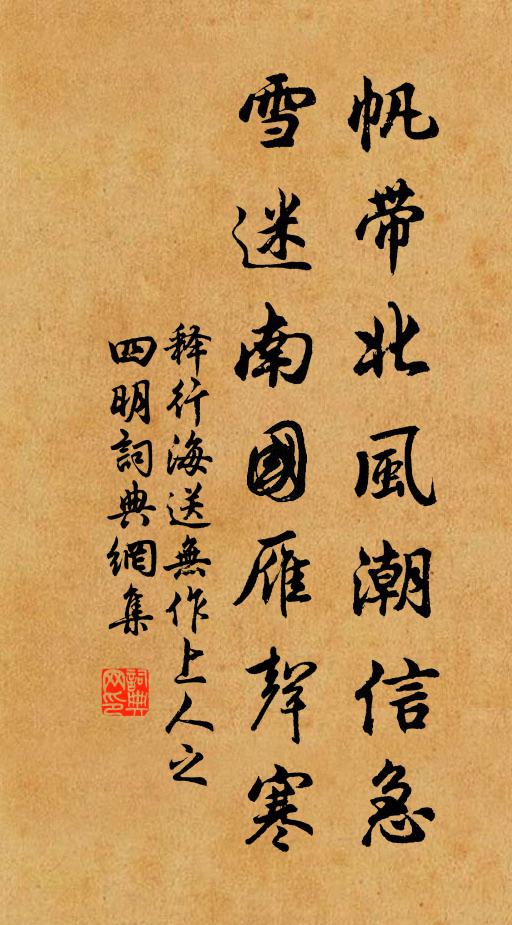 帆帶北風潮信急
雪迷南國雁聲寒
释行海送無作上人之
四明詞典網集
詞典网印